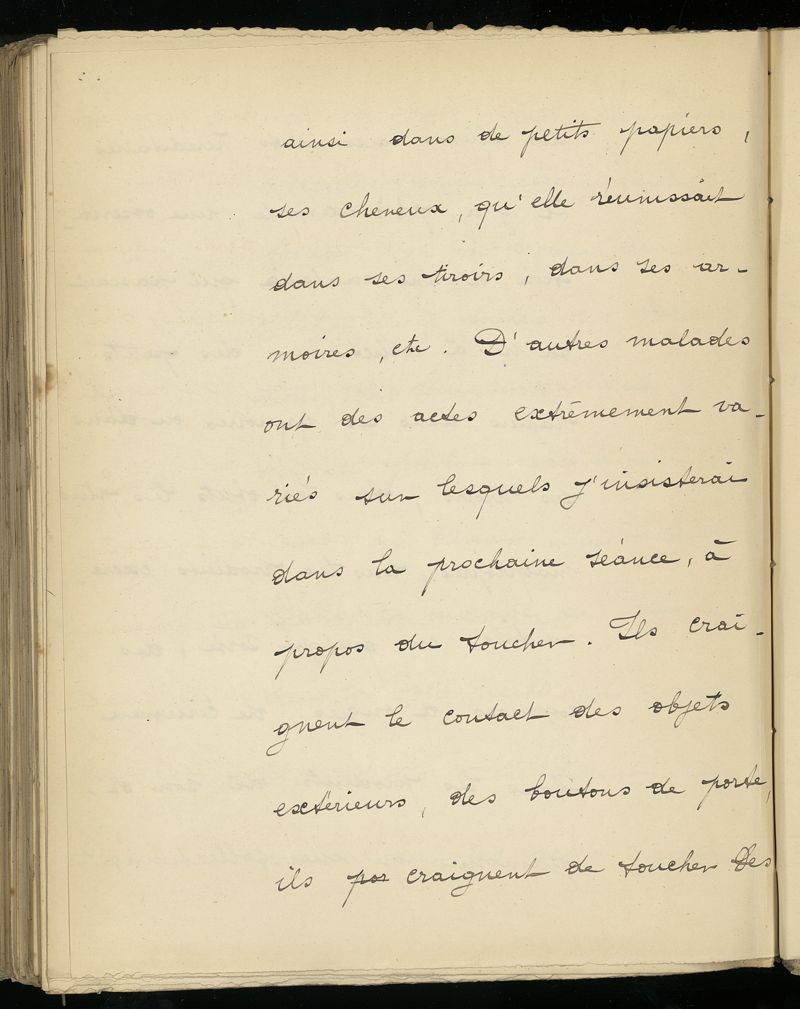 ainsi dans de petits papiers,
ses cheveux, qu'elle réunissait
dans ses tiroirs, dans ses ar-
moires, etc. D'autres malades
ont des actes extrêmement va-
riés sur lesquels j'insisterai
dans la prochaine séance, à
propos du toucher. Ils crai-
gnent le contact des objets
extérieurs, des boutons de porte,
ils craignent de toucher des